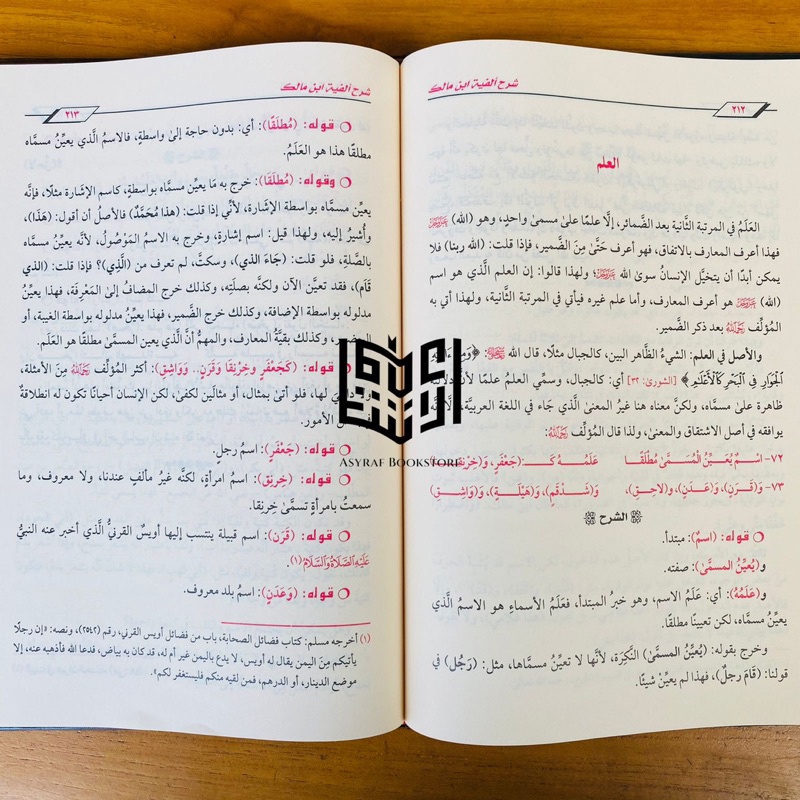 شرح ألفية ابن مالك
٢١٢
العلم
العَلَمُ في المرتبة الثَّانية بعد الضَّمائر، إلَّا علمًا علىٰ مسمىٰ واحدٍ، وهو (الله)
فهذا أعرف المعارف بالاتفاق، فهو أعرف حَتَّىٰ مِنَ الضَّمير، فإذا قلت: (الله ربنا) فلا
يمكن أبدًا أن يتخيَّل الإنسانُ سوىٰ الله ؛ ولهذا قالوا: إن العلم الَّذي هو اسم
(الله) هو أعرف المعارف، وأما علم غيره فيأتي في المرتبة الثَّانية، ولهذا أتي به
المؤلِّف رَحِمَهُ اللَّهُ بعد ذكر الضَّمير.
والأصل في العلم: الشيءُ الظَّاهر البين، كالجبال مثلًا، قال الله : ﴿وَمِنْ ءَايَٰتِهِ
ٱلْجَوَارِ فِى ٱلْبَحْرِ كَٱلْأَعْلَٰمِ﴾ [الشورىٰ: ٣٢] أي: كالجبال، وسمِّي العلمُ علمًا لأن دلالته
ظاهرة علىٰ مسمَّاه، ولكنَّ معناه هنا غيرُ المعنىٰ الَّذي جَاء في اللغة العربيَّة، لأنَّه
يوافقه في أصل الاشتقاق والمعنىٰ، ولذا قال المؤلِّف رَحِمَهُ اللَّهُ:
٧٢- اسْمٌ يُعَيِّنُ الْمُسَمَّىٰ مُطْلَقًا عَلَمُهُ كَـ: (جَعْفَرٍ، وَ(خِرْنِقَا)
٧٣- وَ(قَرَنٍ)، وَ(عَدَنٍ)، و(لاحِقٍ)، وَ(شَذْقَمٍ)، وَ(هَيْلَةٍ)، وَ(وَاشِقِ)
الشرح
قوله: (اسمٌ): مبتدأ.
و(يُعيِّنُ المسمَّىٰ): صفته.
و(عَلَمُهُ): أي: عَلَمُ الاسم، وهو خبرُ المبتدأ، فعَلَمُ الأسماءِ هو الاسمُ الَّذي
يعيِّنُ مسمَّاه، لكن تعيينًا مطلقًا.
وخرج بقوله: (يُعيِّنُ المسمَّىٰ) النَّكِرَة، لأنَّها لا تعيِّنْ مسمَّاها، مثل: (رَجُل) في
قولنا: (قَامَ رجلٌ)، فهذا لم يعيِّنْ شيئًا.
شرح ألفية ابن مالك
٢١٣
قوله: (مُطلَقًا): أي: بدون حاجة إلىٰ واسطةٍ، فالاسمُ الَّذي يعيِّنُ مسمَّاه
مطلقًا هذا هو العَلَمُ.
وقوله: (مُطلَقَا): خرج به مَا يعيِّن مسمَّاه بواسطةٍ، كاسم الإشارة مثلًا، فإنَّه
يعيِّن مسمَّاه بواسطة الإشارة، لأنِّي إذا قلت: (هذا مُحَمَّدٌ) فالأصلُ أن أقول: (هَذَا)،
وأُشيرُ إليه، ولهذا قيل: اسم إشارةٍ، وخرج به الاسمُ المَوْصُولُ، لأنَّه يعيِّنُ مسمَّاه
بالصِّلةِ، فلو قلت: (جَاءَ الذي)، وسكتَّ، لم تعرف من (الَّذِي)؟ فإذا قلت: (الذي
قَام)، فقد تعيَّن الآن ولكنَّه بصلَتِه، وكذلك خرج المضافُ إلىٰ المَعْرِفَة، فهذا يعيِّنُ
مدلوله بواسطة الإضافة، وكذلك خرج الضَّمير، فهذا يعيِّنُ مدلوله بواسطة الغيبة، أو
الحضور، وكذلك بقيَّة المعارف، والمهمُّ أنَّ الَّذي يعين المسمَّىٰ مطلقًا هو العَلَم.
قوله: (كَجَعْفَرٍ وخِرْنِقَا وَقَرَنٍ.. وَوَاشِقِ): أكثر المؤلِّف رَحِمَهُ اللَّهُ مِنَ الأمثلة،
لها، فلو أتىٰ بمثال، أو مثالَين لكفىٰ، لكن الإنسان أحيانًا تكون له انطلاقةٌ
الأمور.
قوله: (جَعْفَرٍ): اسمُ رجلٍ.
قوله: (خِرْنِق): اسمُ امرأةٍ، لكنَّه غيرُ مألفٍ عندنا، ولا معروف، وما
سمعتُ بامرأةٍ تسمَّىٰ خِرْنِقا.
قوله: (قَرَن): اسم قبيلة ينتسب إليها أويسٌ القرنيُّ الَّذي أخبر عنه النبيُّ
عَلَيْهِ ٱلصَّلَاةُ وَٱلسَّلَامُ (١).
قوله: (وَعَدَنٍ): اسمُ بلد معروف.
(١) أخرجه مسلم: كتاب فضائل الصحابة، باب من فضائل أويس القرني، رقم (٢٥٤٢)، ونصه: «إن رجلًا
يأتيكم مِنَ اليمن يقال له أويس، لا يدع باليمن غير أم له، قد كان به بياض، فدعا الله فأذهبه عنه، إلا
موضع الدينار، أو الدرهم، فمن لقيه منكم فليستغفر لكم».
ASYRAF BOOKSTORE